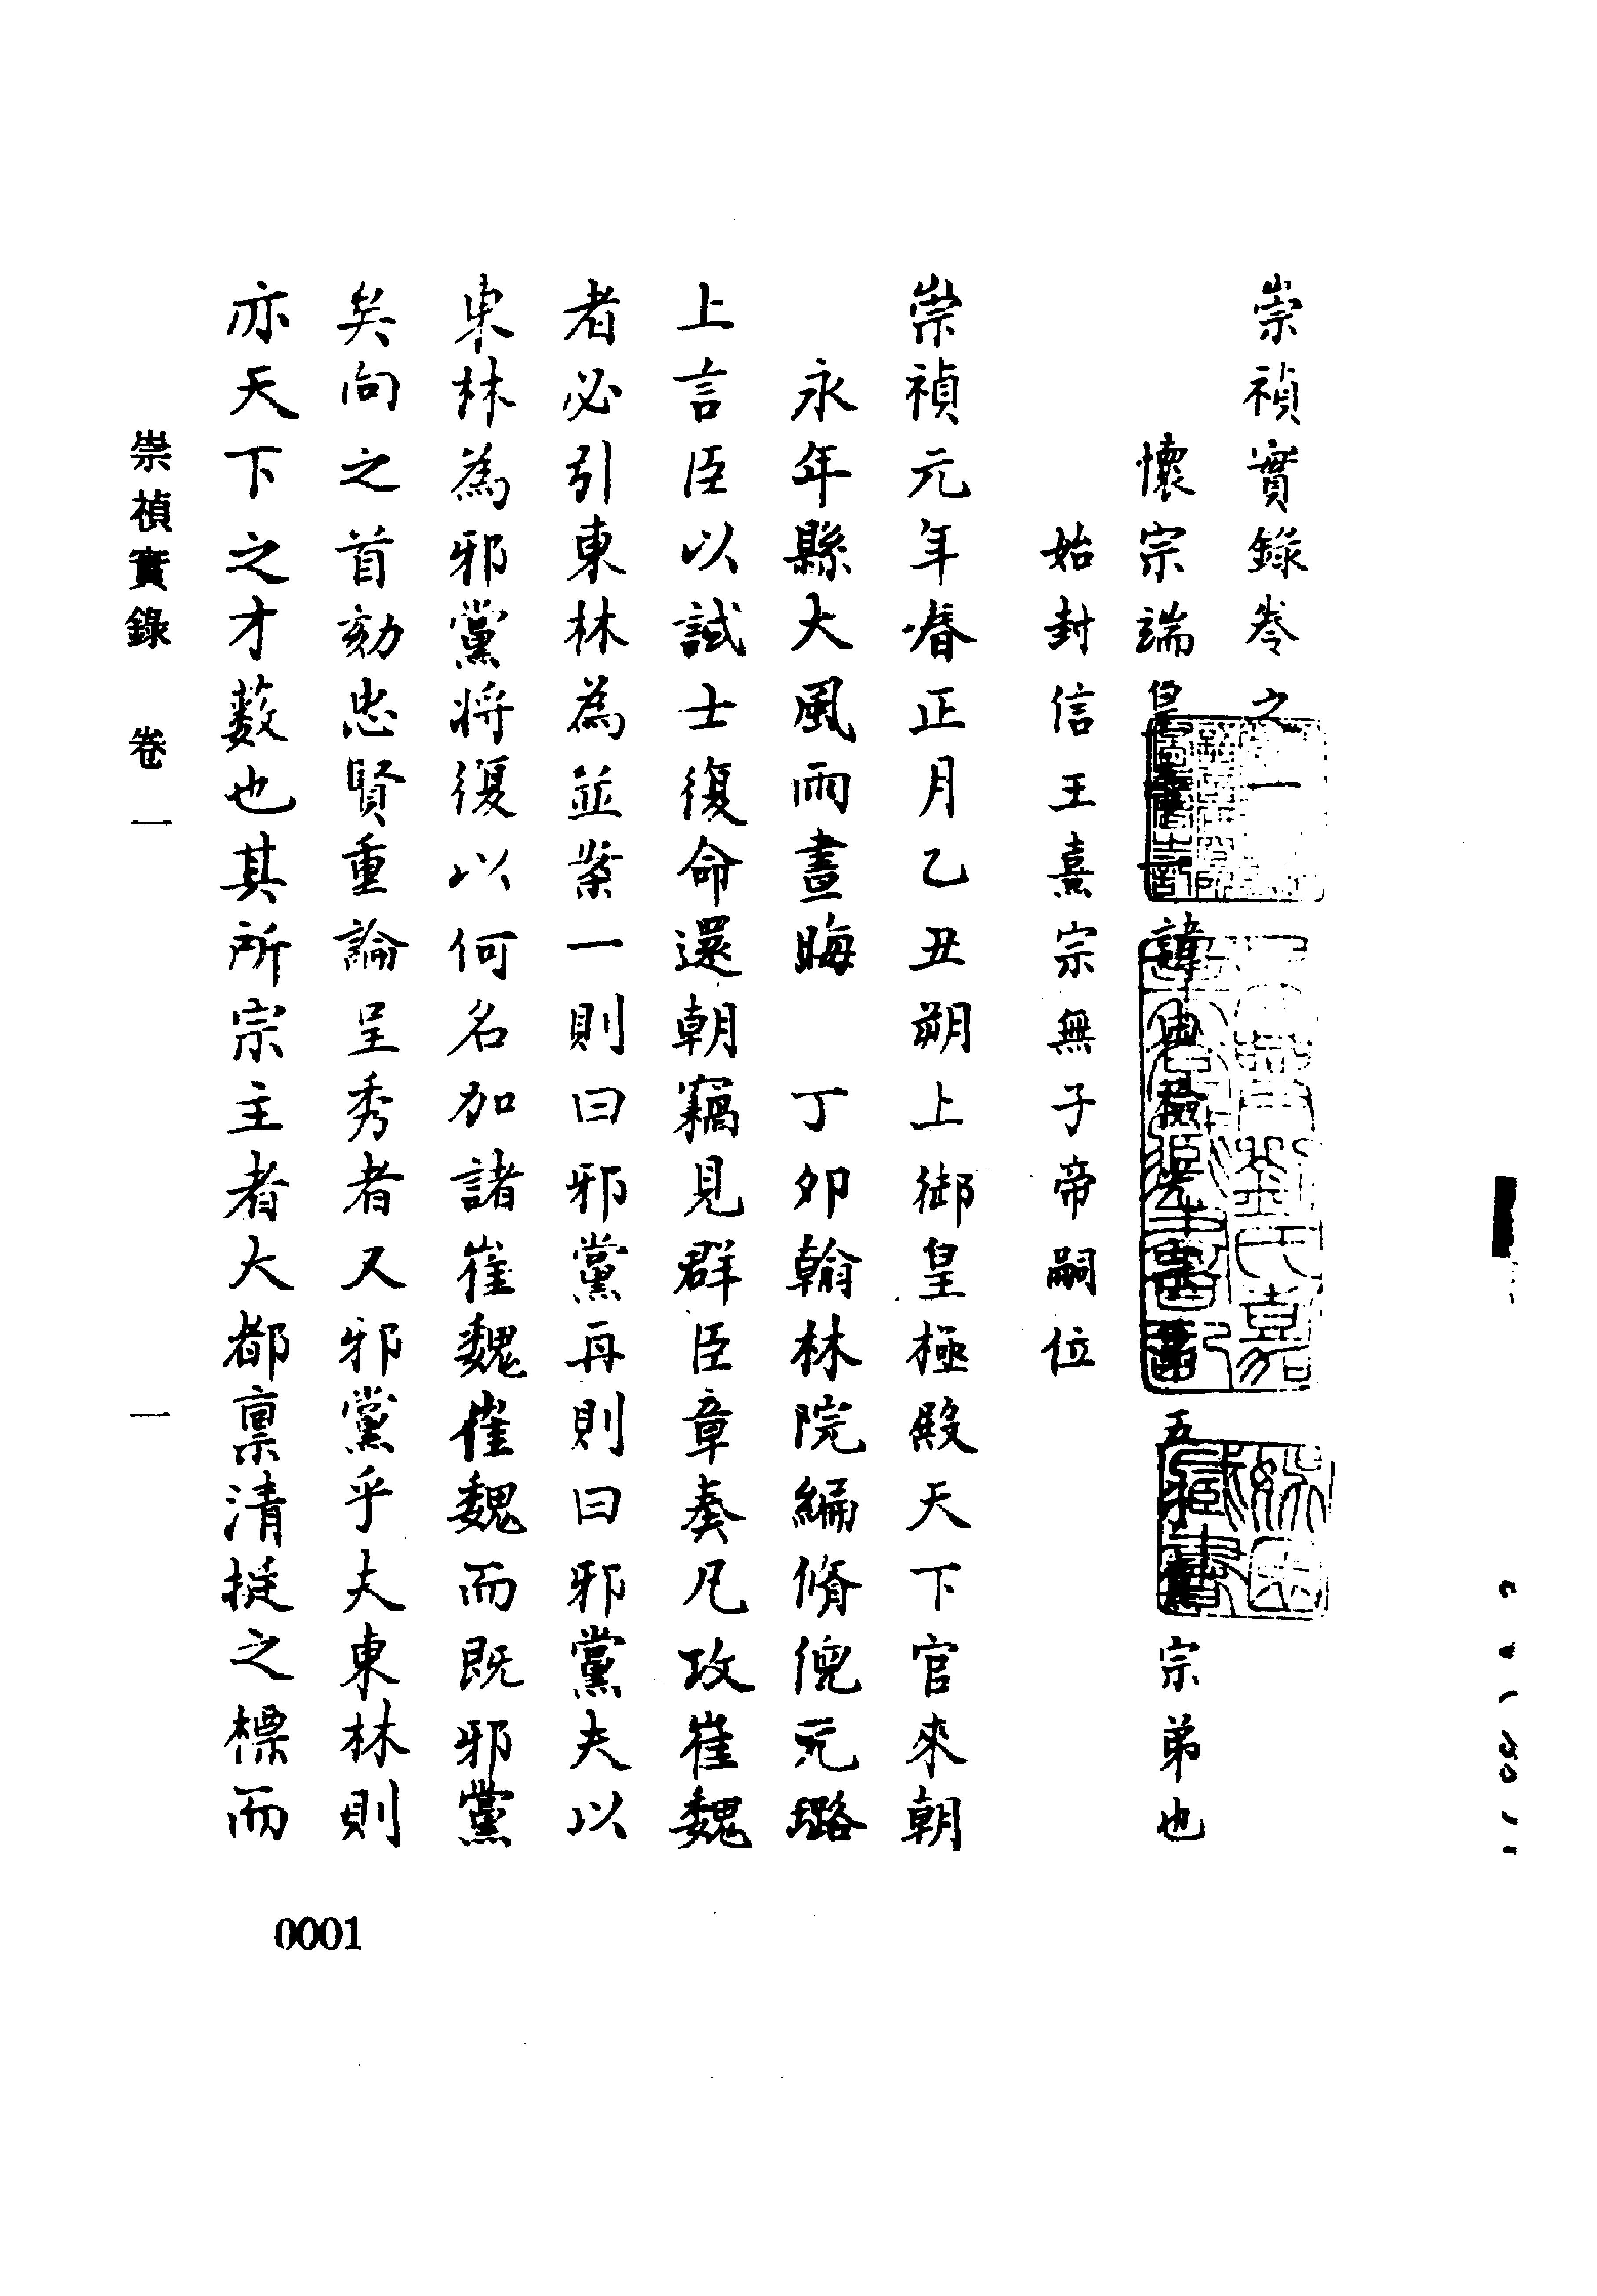 崇禎實錄卷之一
懷宗端皇帝諱由檢光宗第五子熹宗弟也
始封信王熹宗無子帝嗣位
崇禎元年春正月乙丑朔上御皇極殿天下官來朝
永年縣大風雨晝晦　丁夘翰林院編脩倪元璐
上言臣以試士復命還朝竊見群臣章奏凡攻崔魏
者必引東林為並案一則曰邪黨再則曰邪黨夫以
東林為邪黨將復以何名加諸崔魏崔魏而既邪黨
矣向之首劾忠賢重論呈秀者又邪黨乎夫東林則
亦天下之才藪也其所宗主者大都稟清挺之標而
崇禎實錄　卷一　一
0001